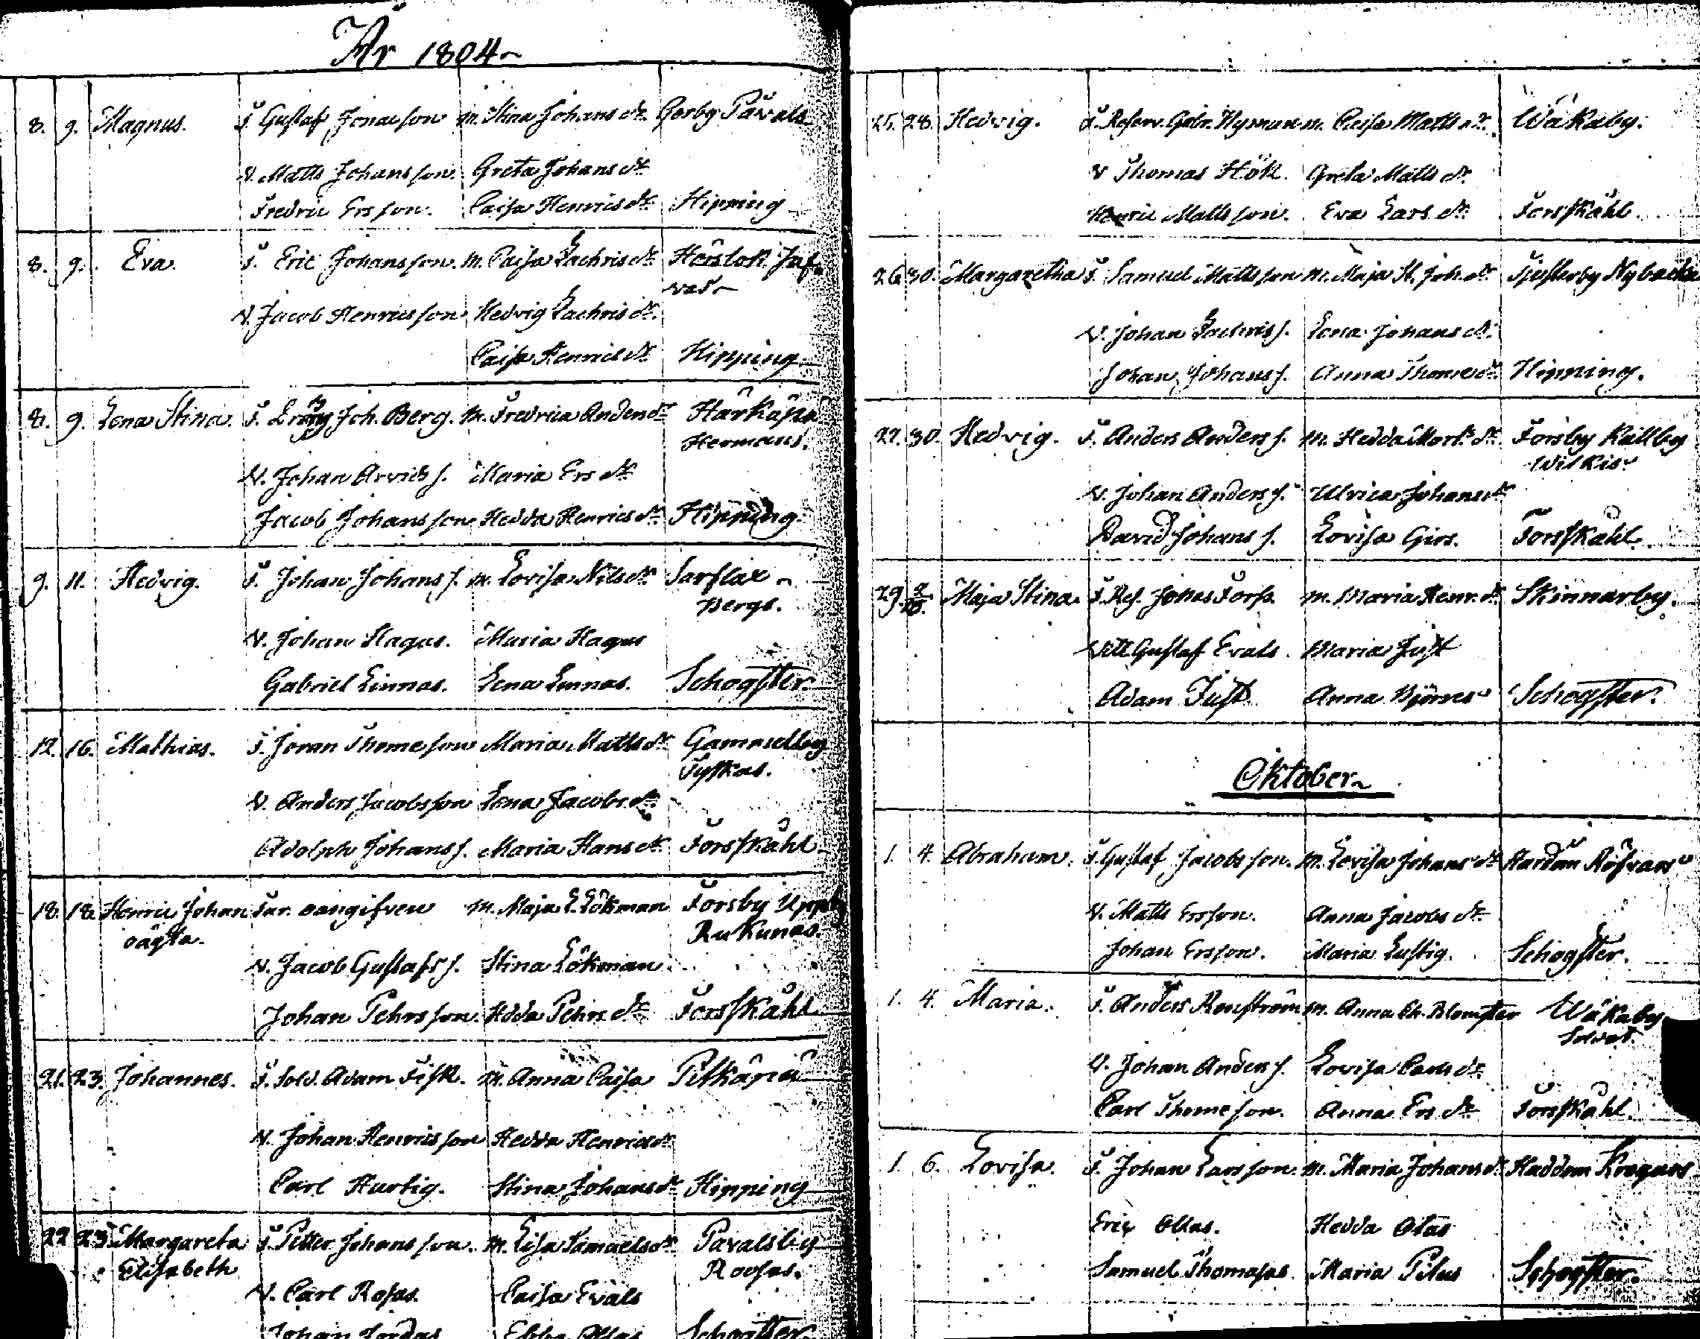 År 1804
8. 9. Magnus. F. Gustaf Jonasson m. Stina Johans dr. Gerby Påvals
V. Matts Johansson Greta Johans dr
Fredric Ersson. Caisa Henrics dr. Hipping
8. 9. Eva. F. Eric Johansson. m. Caisa Zachris dr. Hörslök
V. Jacob Henricsson Hedvig Zachris dr.
Caisa Henrics dr. Hipping
8. 9. Lena Stina. F. Joh. Berg. m. Fredrica Anders dr Härkäpää
Hermans.
V. Johan Arvids s. Maria Ers dr
Jacob Johansson Hedda Henrics dr. Hipping
9. 11. Hedvig. F. Johan Johans s. m. Lovisa Nils dr. Sarflax
Bergs.
V. Johan Hagus. Maria Hagus
Gabriel Linnas. Lena Linnas. Schogster.
12. 16. Mathias. F. Jöran Thomesson Maria Matts dr. Gammelby
Tyskas.
V. Anders Jacobsson Lena Jacobs dr
Adolph Johans s. Maria Hans dr. Forsskåhl
18. 18. Henric Johan Far. oangifven m. Maja L. Lökman Forsby Uppby
oägta. Rukunas.
V. Jacob Gustafs s. Stina Lökman
Johan Pehrsson. Hedda Pehrs dr. Forsskåhl
21. 23. Johannes. F. Sold. Adam Fisk. m. Anna Caisa Pitkäpää
V. Johan Henricsson Hedda Henrics dr
Carl Hurtig. Stina Johans dr Hipping
22 23. Margareta F. Petter Johansson. m. Lisa Samuels dr Pävalsby
Elisabeth Roosas.
V. Carl Rosas. Caisa Evals
Johan Jordas Ebba Ollas Schogster.
25. 28. Hedvig. F. Reserv. Gabr. Nyman m. Caisa Matts dr. Wåkaby.
V Thomas Hök Greta Matts dr.
Henric Mattsson. Eva Lars dr. Forsskåhl
26 30. Margaretha F. Samuel Mattsson m. Maja St. Joh. dr. Tjusterby Nybacka
V. Johan Zachris s. Lena Johans dr.
Johan Johans s. Anna Thome dr. Hipping.
27. 30. Hedvig. F. Anders Anders s. m. Hedda Mart. dr. Forsby Källby
Wilkis
V. Johan Anders s. Ulrica Johans dr
David Johans s. Lovisa Girs. Forsskåhl
29 2/10. Maja Stina. F. Res. Jonas Forss. m. Maria Henr. dr. Skinnarby.
Vitt Gustaf Evals. Maria Just
Adam Just Anna Björns Schogster.
Oktober
1. 4. Abraham. F. Gustaf Jacobsson. m. Lovisa Johans dr. Hardom Röfvars
V. Matts Ersson. Anna Jacobs dr.
Johan Ersson. Maria Lustig. Schogster.
1. 4. Maria. F. Anders Renström m. Anna Ch. Blomster Wåkaby
Soldat.
V. Johan Anders s. Lovisa Carls dr
Carl Thomesson. Anna Ers dr. Forsskåhl.
1. 6. Lovisa. F. Johan Larsson. m. Maria Johans dr. Haddom Krogars
Eric Ollas. Hedda Otas
Samuel Thomasas. Maria Pilus Schogster.